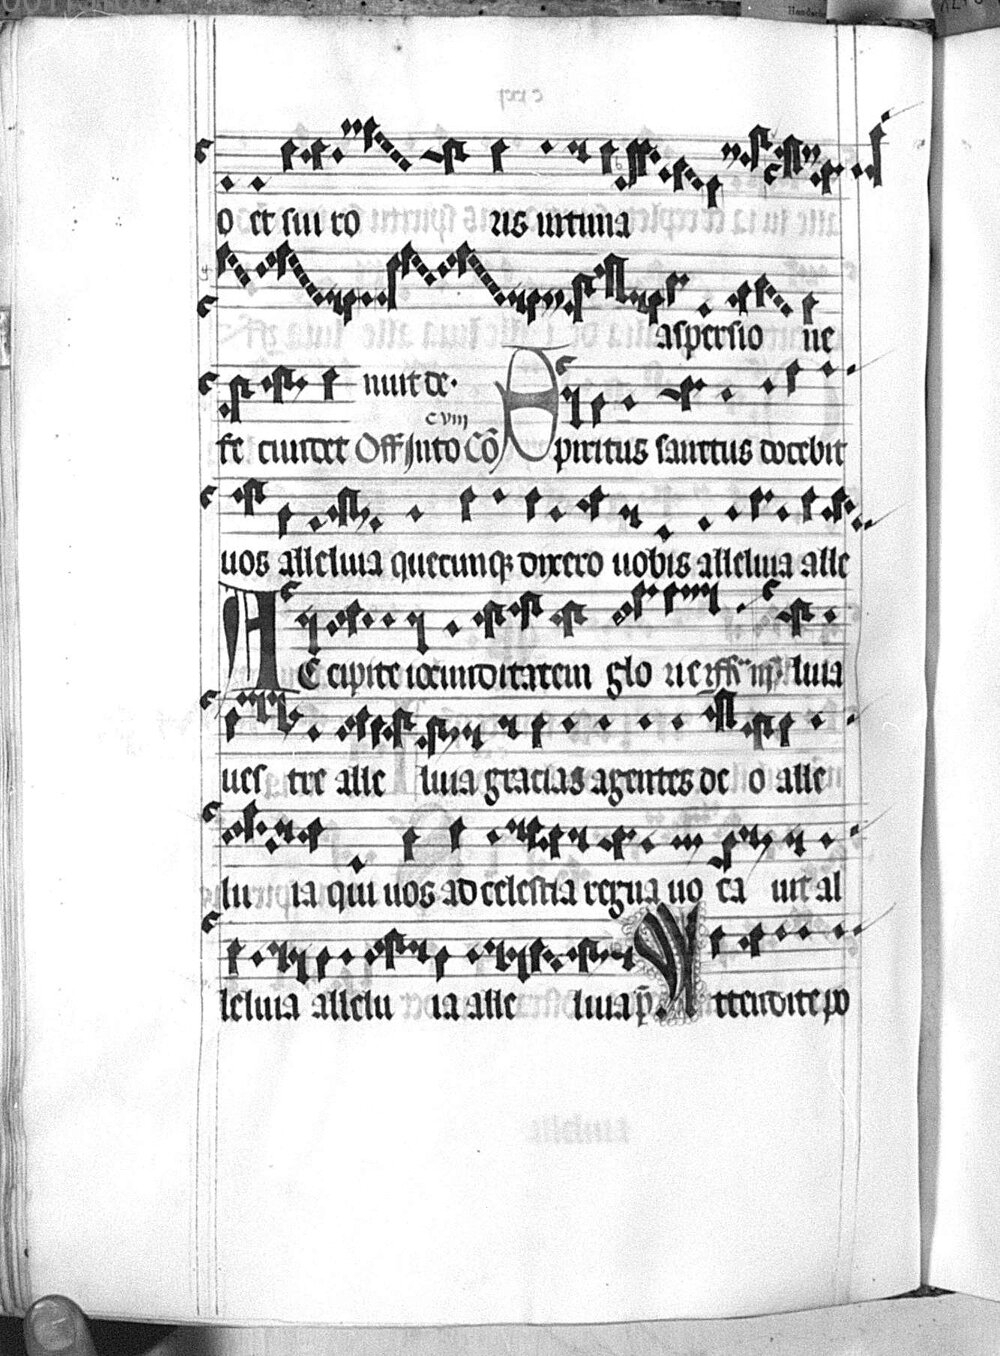 o et sui ro ris intima
aspersio ne
mut de·
cviij
fe ciuitet Off Into Cō Spiritus sanctus docebit
uos alleluia quecunq; dixero uobis alleluia alle
A
Ccipite iocunditatem glo rie luia
ues tre alle luia gracias agentes de o alle
lu ia qui uos ad celestia regna uo ca uit al
leluia allelu ia alle luia p̄ Attendite po